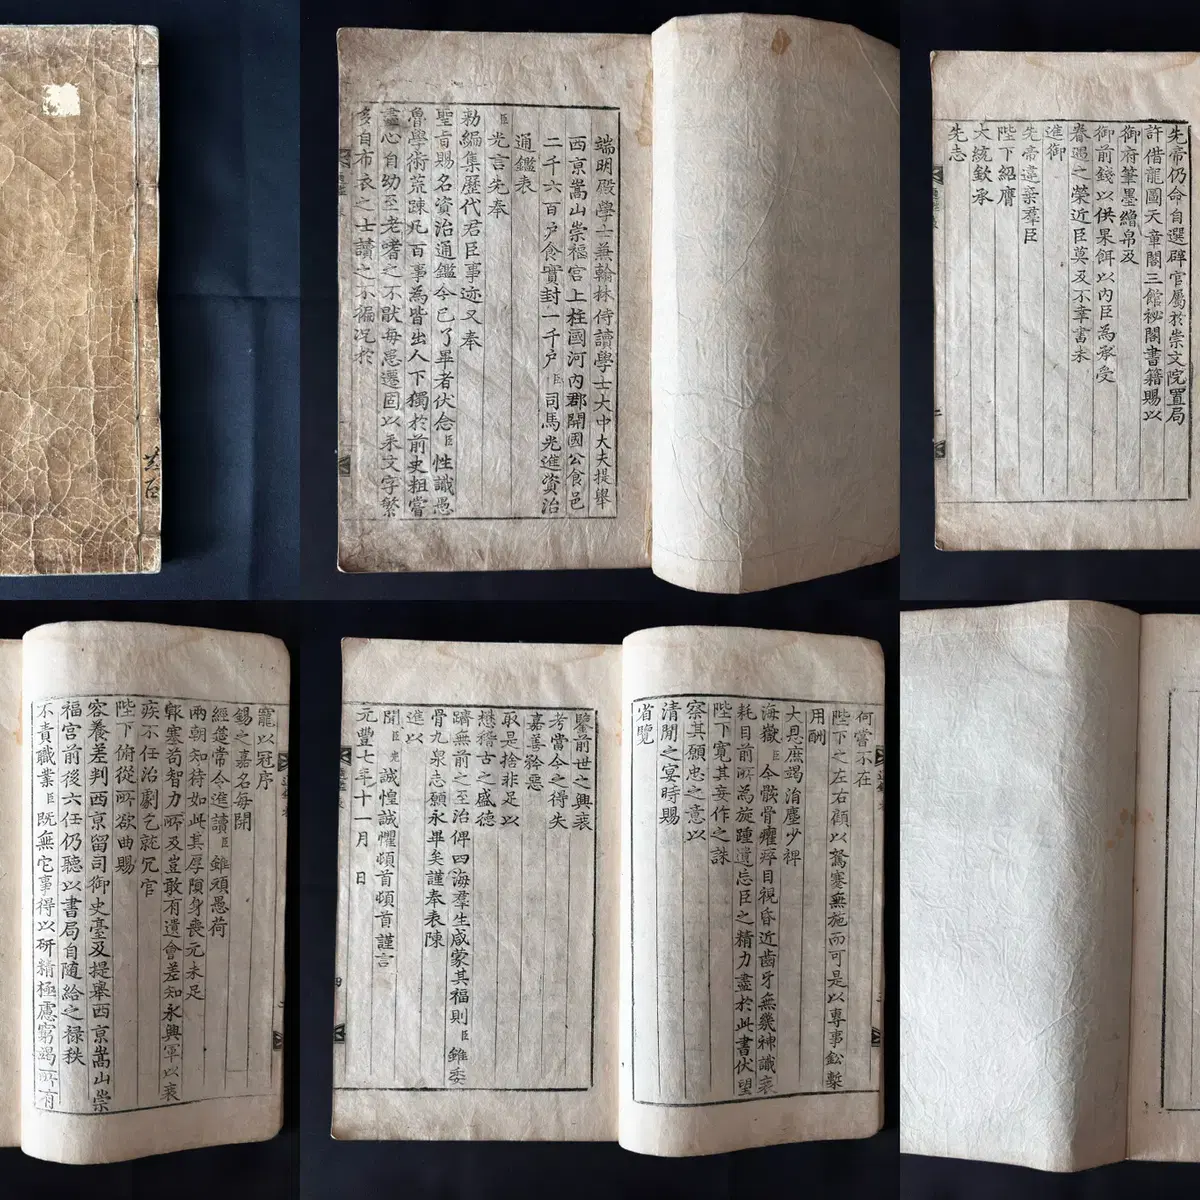 共百
端明殿學士兼翰林侍讀學士大中大夫提舉
西京嵩山崇福宮上柱國河內郡開國公食邑
二千六百戶食實封一千戶臣司馬光進資治
通鑑表
臣光言先奉
勑編集歷代君臣事迹又奉
聖旨賜名資治通鑑今已了畢者伏念臣性識愚
魯學術荒踈凡百事為皆出人下獨於前史粗嘗
盡心自幼至老嗜之不厭每患遷固以來文字繁
多自布衣之士讀之不徧況於
先帝仍命自選辟官屬於崇文院置局
許借龍圖天章閣三館秘閣書籍賜以
御府筆墨繒帛及
御前錢以供果餌以內臣為承受
眷遇之榮近臣莫及不幸書未
進御
先帝違棄羣臣
陛下紹膺
大統欽承
先志
寵以冠序
錫之嘉名每開
經筵常令進讀臣雖頑愚荷
兩朝知待如此其厚隕身喪元未足
報塞苟智力所及豈敢有遺會差知永興軍以衰
疾不任治劇乞就冗官
陛下俯從所欲曲賜
容養差判西京留司御史臺及提舉西京嵩山崇
福宮前後六任仍聽以書局自隨給之祿秩
不責職業臣既無它事得以研精極慮窮竭所有
何嘗不在
陛下之左右顧以駑蹇無施而可是以專事鈆槧
用酬
大恩庶竭涓塵少裨
海嶽臣今骸骨癯瘁目視昏近齒牙無幾神識衰
耗目前所為旋踵遺忘臣之精力盡於此書伏望
陛下寬其妄作之誅
察其願忠之意以
清閒之宴時賜
省覽
鑒前世之興衰
考當今之得失
嘉善矜惡
取是捨非足以
懋稽古之盛德
躋無前之至治俾四海羣生咸蒙其福則臣雖委
骨九泉志願永畢矣謹奉表陳
進以
聞臣光誠惶誠懼頓首頓首謹言
元豐七年十一月 日